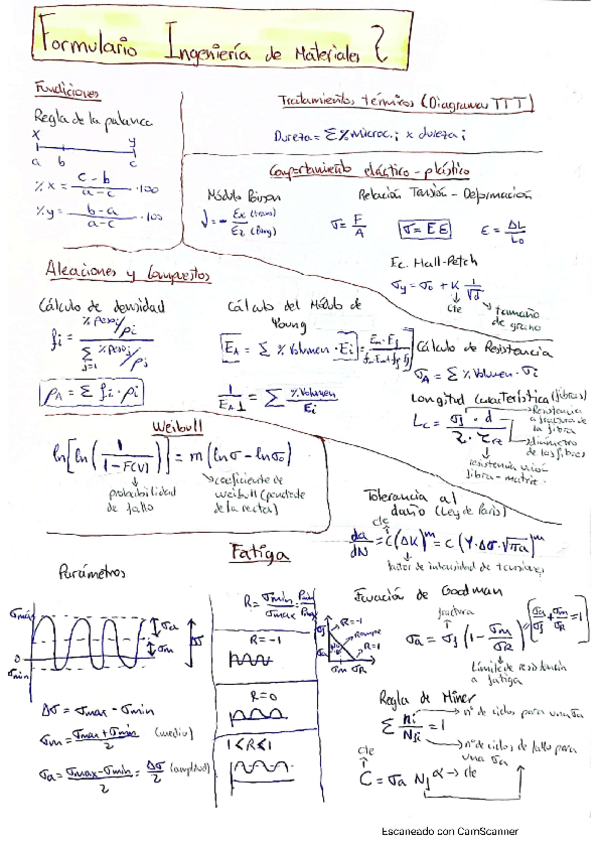 Formulario Ingeniería de Materiales 2
Fundiciones
Regla de la palanca
x y
a b c
% x = (c - b)/(a - c) · 100
% y = (b - a)/(a - c) · 100
Tratamientos térmicos (Diagramas TTT)
Dureza = Σ % microc. i x dureza i
Comportamiento elástico - plástico
Módulo Poisson
ν = - εx (trans) / εz (long)
Relación Tensión - Deformación
σ = F/A
σ = E ε
ε = ΔL/L₀
Ec. Hall-Petch
σy = σ₀ + K 1/√d
cte
tamaño de grano
Aleaciones y Compuestos
Cálculo de densidad
fi = (% Peso i/ρi) / (Σ j=1 % Peso j/ρj)
ρA = Σ fi · ρi
Cálculo del Módulo de Young
EA = Σ % Volumen · Ei = Em · Ef / (fm Em + ff Ef)
1/EA⊥ = Σ % Volumen / Ei
Cálculo de Resistencia
σA = Σ % Volumen · σi
Longitud característica (fibras)
Lc = σf · d / 2 · τc
Resistencia a fractura de la fibra
diámetro de las fibras
resistencia unión fibra - matriz
Weibull
ln[ln(1/(1 - F(V)))] = m (ln σ - ln σ₀)
probabilidad de fallo
coeficiente de weibull (pendiente de la recta)
Tolerancia al daño (Ley de Paris)
cte
da/dN = C (ΔK)^m = C (Y · Δσ · √πa)^m
factor de intensidad de tensiones
Fatiga
Parámetros
σmáx
0
σmin
σa
σm
Δσ
Δσ = σmax - σmin
σm = (σmax + σmin)/2 (medio)
σa = (σmax - σmin)/2 = Δσ/2 (amplitud)
R = σmin/σmax = Pmin/Pmax
R = -1
R = 0
-1 < R < 1
R = -1
R = 1
σm σR
Ecuación de Goodman
fractura
σa = σf (1 - σm/σR)
[σa/σf + σm/σR = 1]
Límite de resistencia a fatiga
Regla de Miner
Σ ni/Nfi = 1
nº de ciclos para una σa
nº de ciclos de fallo para una σa
cte
C = σa Nf^α → cte
Escaneado con CamScanner